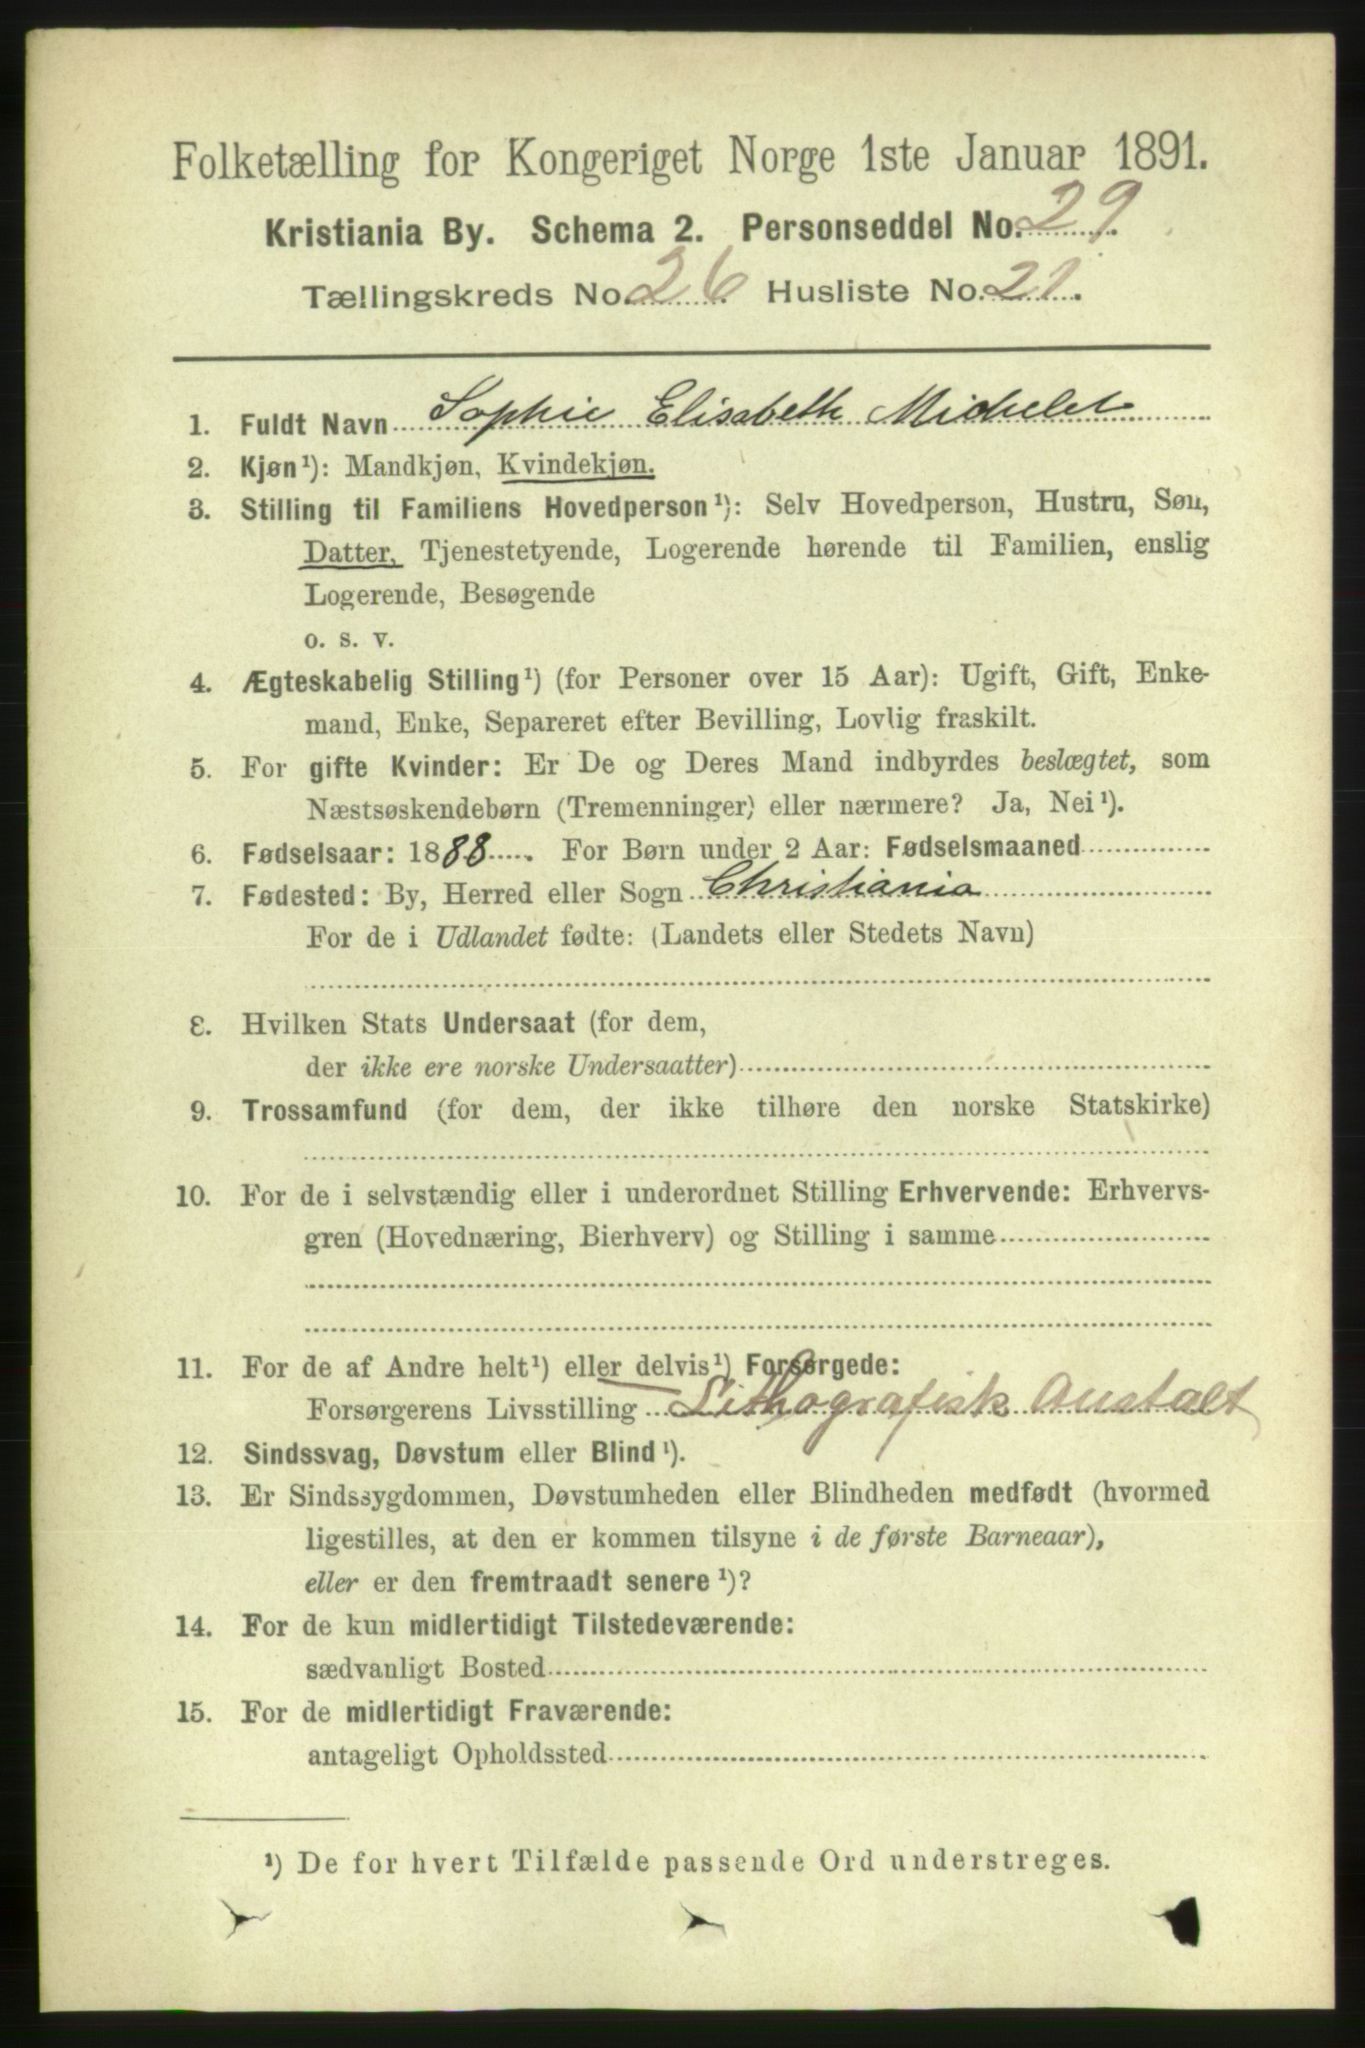 Folketælling for Kongeriget Norge 1ste Januar 1891.
Kristiania By. Schema 2. Personseddel No. 29.
Tællingskreds No. 26 Husliste No. 21.
1. Fuldt Navn Sophie Elisabeth Michelet
2. Kjøn¹): Mandkjøn, Kvindekjøn.
3. Stilling til Familiens Hovedperson¹): Selv Hovedperson, Hustru, Søn,
Datter, Tjenestetyende, Logerende hørende til Familien, enslig
Logerende, Besøgende
o. s. v.
4. Ægteskabelig Stilling¹) (for Personer over 15 Aar): Ugift, Gift, Enke-
mand, Enke, Separeret efter Bevilling, Lovlig fraskilt.
5. For gifte Kvinder: Er De og Deres Mand indbyrdes beslægtet, som
Næstsøskendebørn (Tremenninger) eller nærmere? Ja, Nei¹).
6. Fødselsaar: 1888. For Børn under 2 Aar: Fødselsmaaned
7. Fødested: By, Herred eller Sogn Christiania
For de i Udlandet fødte: (Landets eller Stedets Navn)
8. Hvilken Stats Undersaat (for dem,
der ikke ere norske Undersaatter)
9. Trossamfund (for dem, der ikke tilhøre den norske Statskirke)
10. For de i selvstændig eller i underordnet Stilling Erhvervende: Erhvervs-
gren (Hovednæring, Bierhverv) og Stilling i samme
11. For de af Andre helt¹) eller delvis¹) Forsørgede:
Forsørgerens Livsstilling Lithografisk Anstalt
12. Sindssvag, Døvstum eller Blind¹).
13. Er Sindssygdommen, Døvstumheden eller Blindheden medfødt (hvormed
ligestilles, at den er kommen tilsyne i de første Barneaar),
eller er den fremtraadt senere¹)?
14. For de kun midlertidigt Tilstedeværende:
sædvanligt Bosted
15. For de midlertidigt Fraværende:
antageligt Opholdssted
¹) De for hvert Tilfælde passende Ord understreges.